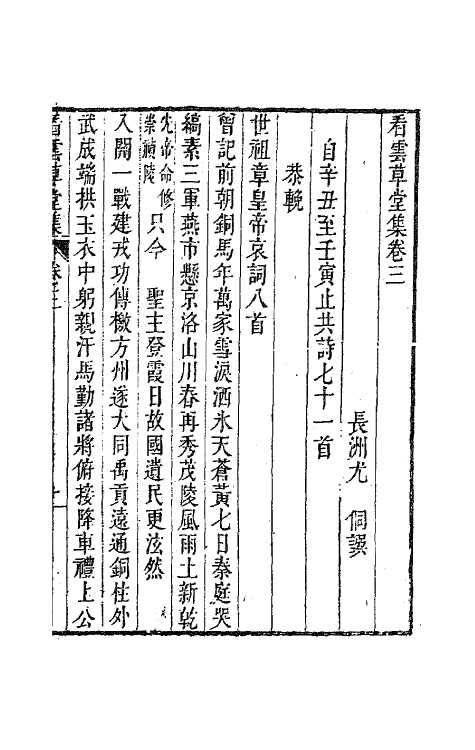 看雲草堂集卷三
長洲尤 侗譔
自辛丑至壬寅止共詩七十一首
恭輓
世祖章皇帝哀詞八首
曾記前朝銅馬年萬家雪淚洒氷天蒼黃七日秦庭哭
縞素三軍燕市懸京洛山川春再秀茂陵風雨土新乾
先帝命修
崇禎陵 只今 聖主登霞日故國遺民更泫然
入關一戰建戎功傳檄方州遂大同禹貢遠通銅柱外
武成端拱玉衣中躬親汗馬勤諸將俯接降車禮上公
看雲草堂集 卷三 一